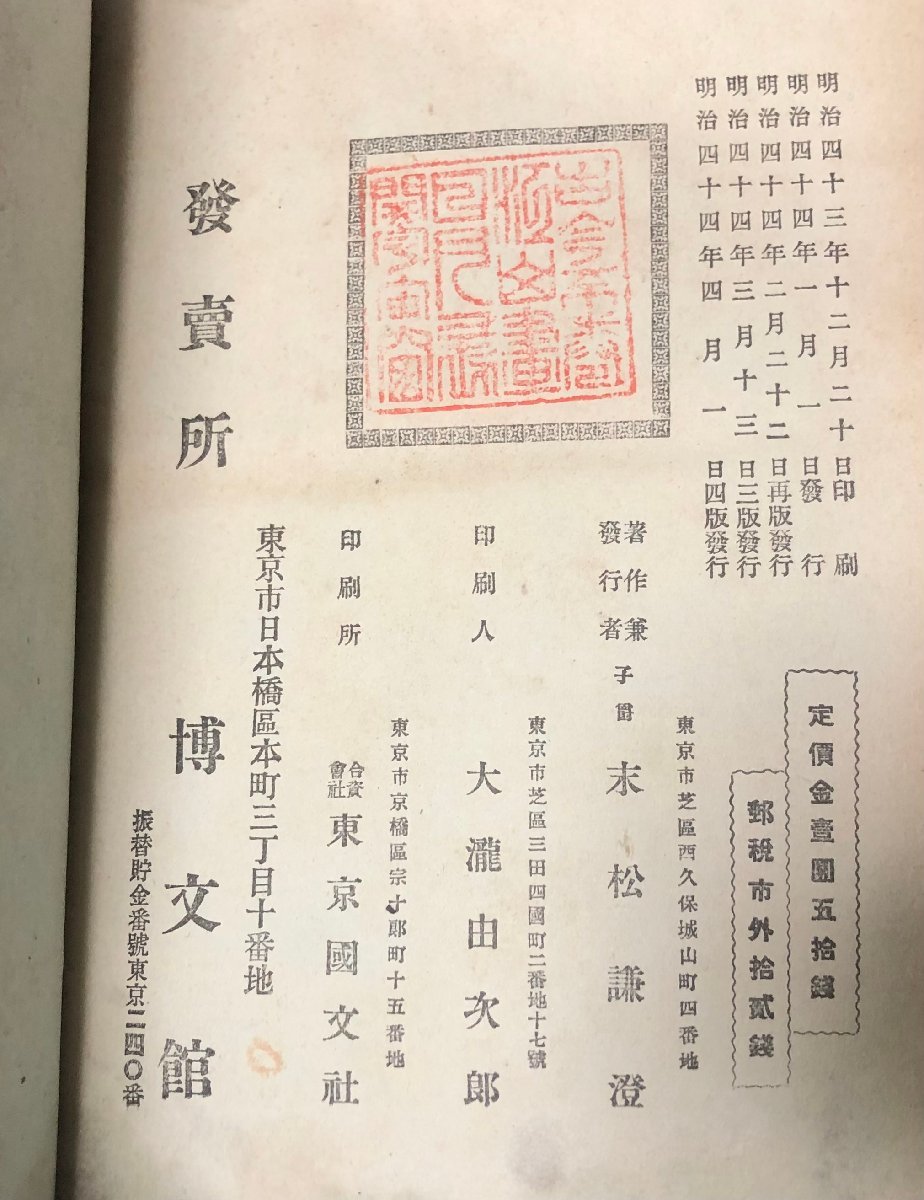 明治四十三年十二月二十日印刷
明治四十四年一月一日發行
明治四十四年二月二十二日再版發行
明治四十四年三月十三日三版發行
明治四十四年四月一日四版發行
定價金壹圓五拾錢
郵税市外拾貳錢
東京市芝區西久保城山町四番地
著作兼
發行者
子爵 末松謙澄
東京市芝區三田四國町二番地十七號
印刷人 大瀧由次郎
東京市京橋區宗十郎町十五番地
印刷所 合資會社 東京國文社
東京市日本橋區本町三丁目十番地
發賣所 博文館
振替貯金番號東京二四〇番